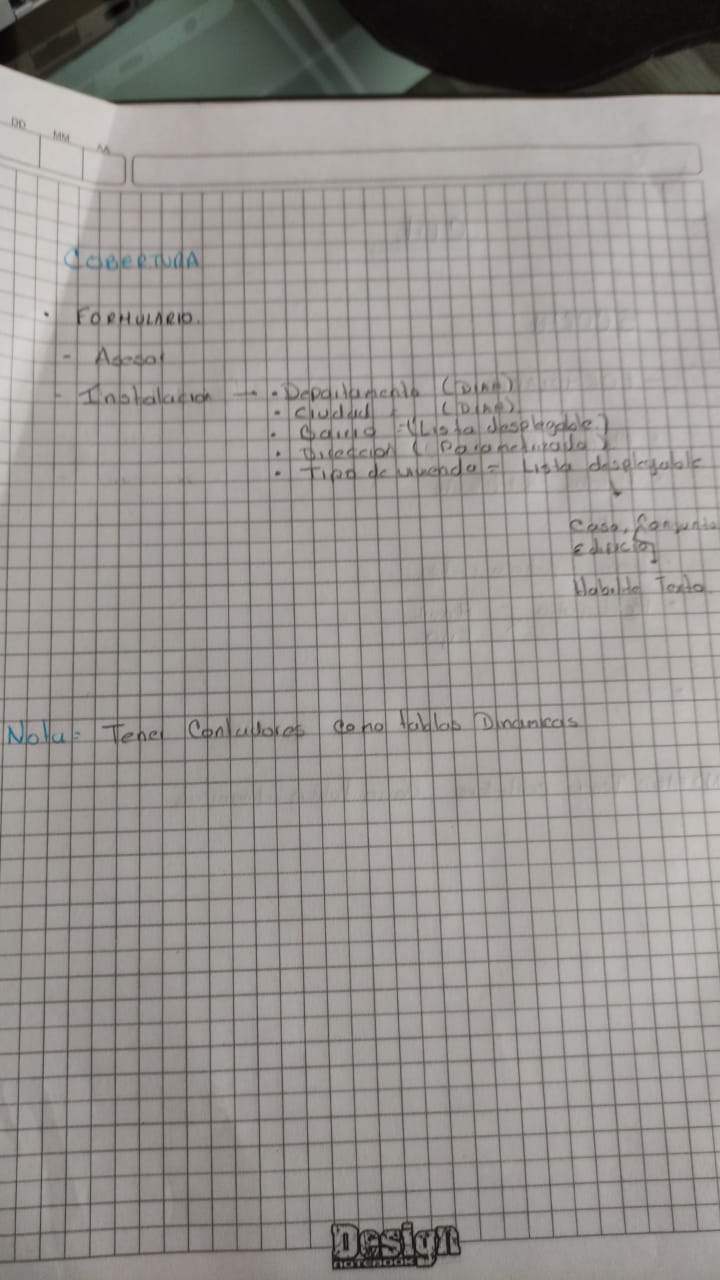 DD MM AA
COBERTURA
• FORMULARIO.
- Asesor
- Instalacion → • Departamento (DIAN)
• Ciudad (DIAN)
• Barrio = (Lista desplegable)
• Direccion (Parametrizada)
• Tipo de vivienda = Lista desplegable
↓
Casa, Conjunto
Edificio
Habilita Texto
Nota: Tener Contadores como tablas Dinamicas
Design
NOTEBOOK